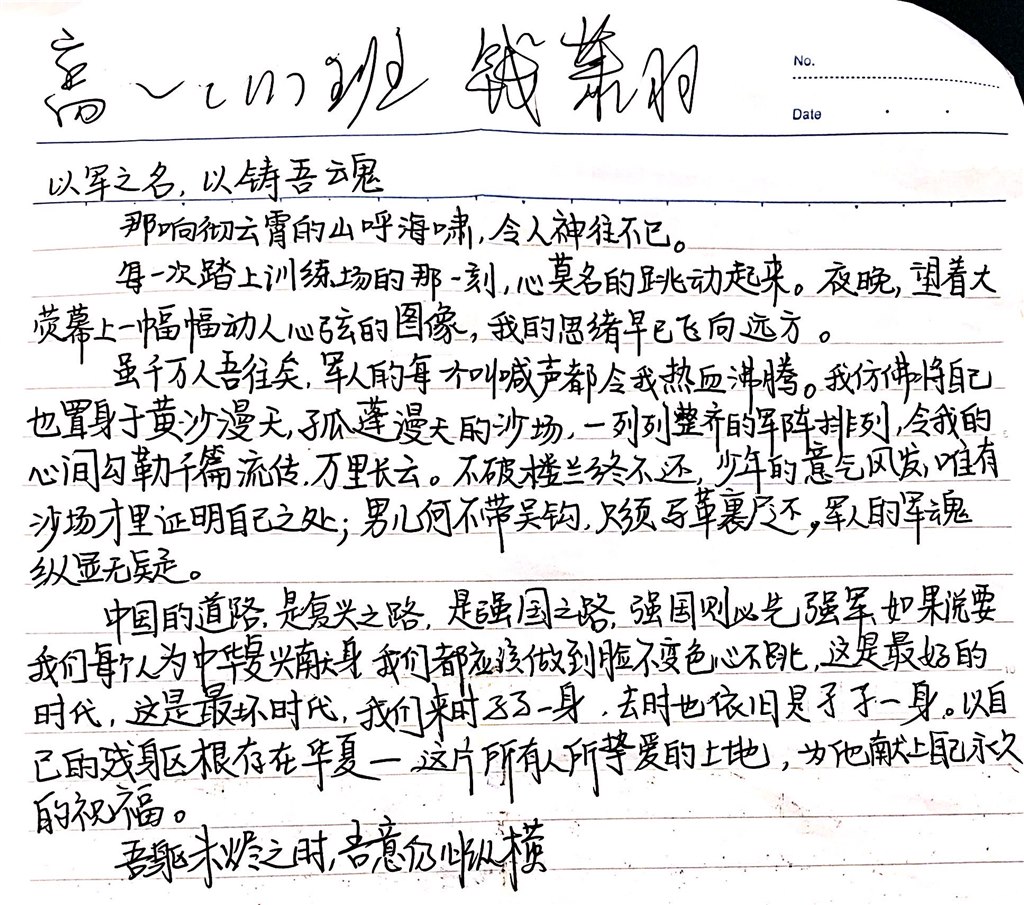 高一(17)班 钱 羽
No.
Date
以军之名，以铸吾魂
那响彻云霄的山呼海啸，令人神往不已。
每一次踏上训练场的那一刻，心莫名的跳动起来。夜晚，望着大
荧幕上一幅幅动人心弦的图像，我的思绪早已飞向远方。
虽千万人吾往矣，军人的每才叫喊声都令我热血沸腾。我仿佛将自己
也置身于黄沙漫天，孤蓬漫天的沙场，一列列整齐的军阵排列，令我的
心间勾勒千篇流传，万里长云。不破楼兰终不还，少年的意气风发，唯有
沙场才里证明自己之处；男儿何不带吴钩，只须马革裹尸还，军人的军魂
纵显无疑。
中国的道路，是复兴之路，是强国之路，强国则必先强军，如果说要
我们每个人为中华复兴献身，我们都应该做到脸不变色心不跳，这是最好的
时代，这是最坏时代，我们来时孑孓一身，去时也依旧是孑孑一身。以自
己的残躯根存在华夏一这片所有人所挚爱的土地，为他献上自己永久
的祝福。
吾躯未烬之时，吾意仍纵横